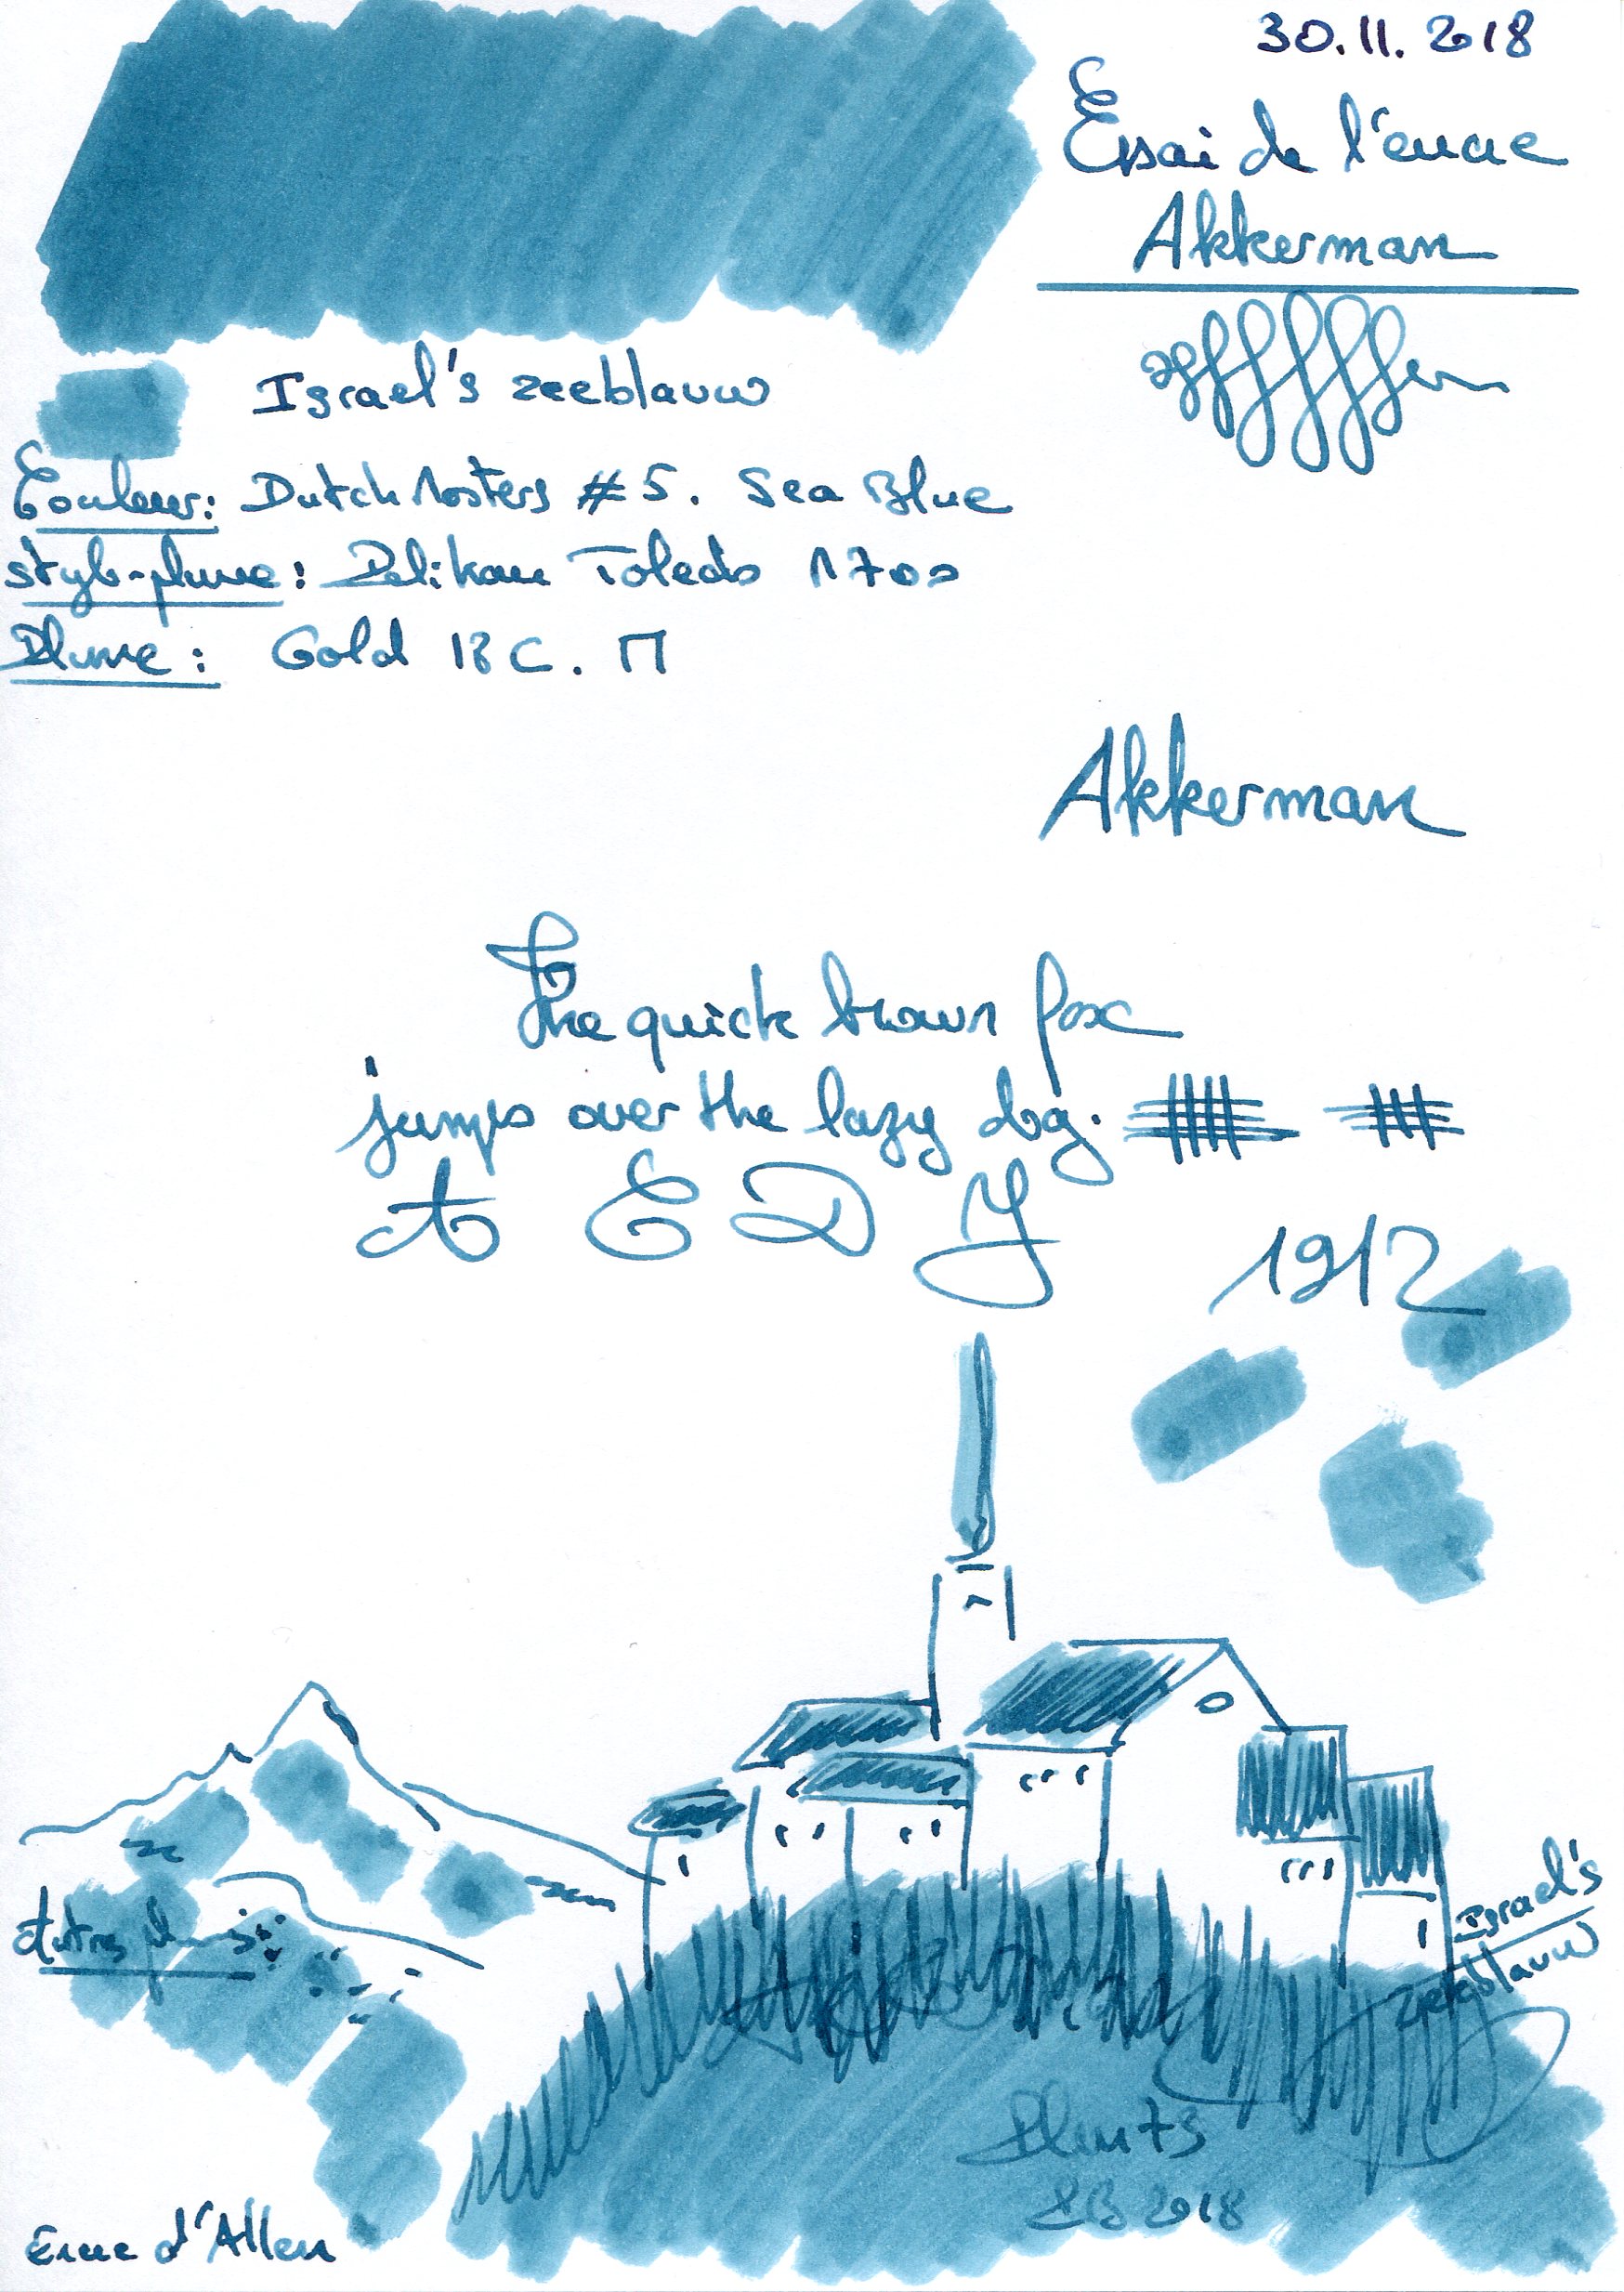 30.11.2018
Essai de l'encre
Akkerman
Israel's zeeblauw
Couleur: Dutch Masters #5. Sea Blue
stylo-plume: Pelikan Toledo 1700
Plume: Gold 18C. M
Akkerman
The quick brown fox
jumps over the lazy dog.
A E D J
1912
Israel's
zeeblauw
Autres
Plum73
2018
Encre d'Allen